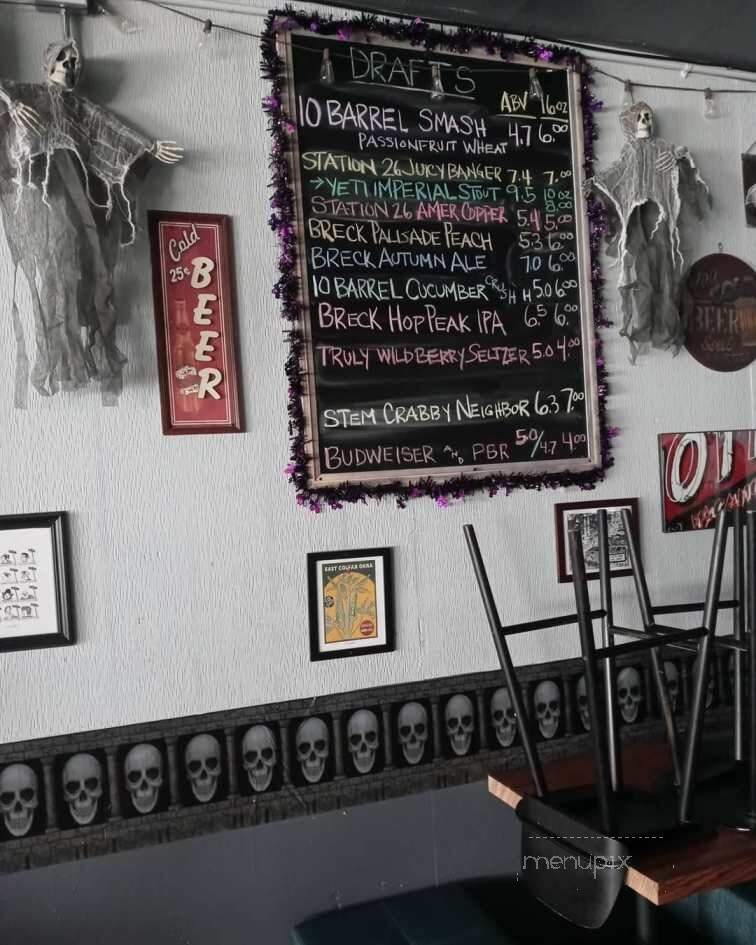 DRAFTS
ABV 16oz
10 BARREL SMASH 4.7 6.00
PASSIONFRUIT WHEAT
STATION 26 JUICY BANGER 7.4 7.00
→YETI IMPERIAL STOUT 9.5 10oz
STATION 26 AMER COPPER 5.4 5.00
BRECK PALISADE PEACH 5.3 6.00
BRECK AUTUMN ALE 7.0 6.00
10 BARREL CUCUMBER CRUSH 5.0 6.00
BRECK HOP PEAK IPA 6.5 6.00
TRULY WILDBERRY SELTZER 5.0 4.00
STEM CRABBY NEIGHBOR 6.3 7.00
BUDWEISER AND PBR 5.0/4.7 4.00
Cold
25¢
BEER
BEER
EAST COLFAX OKRA
menupix